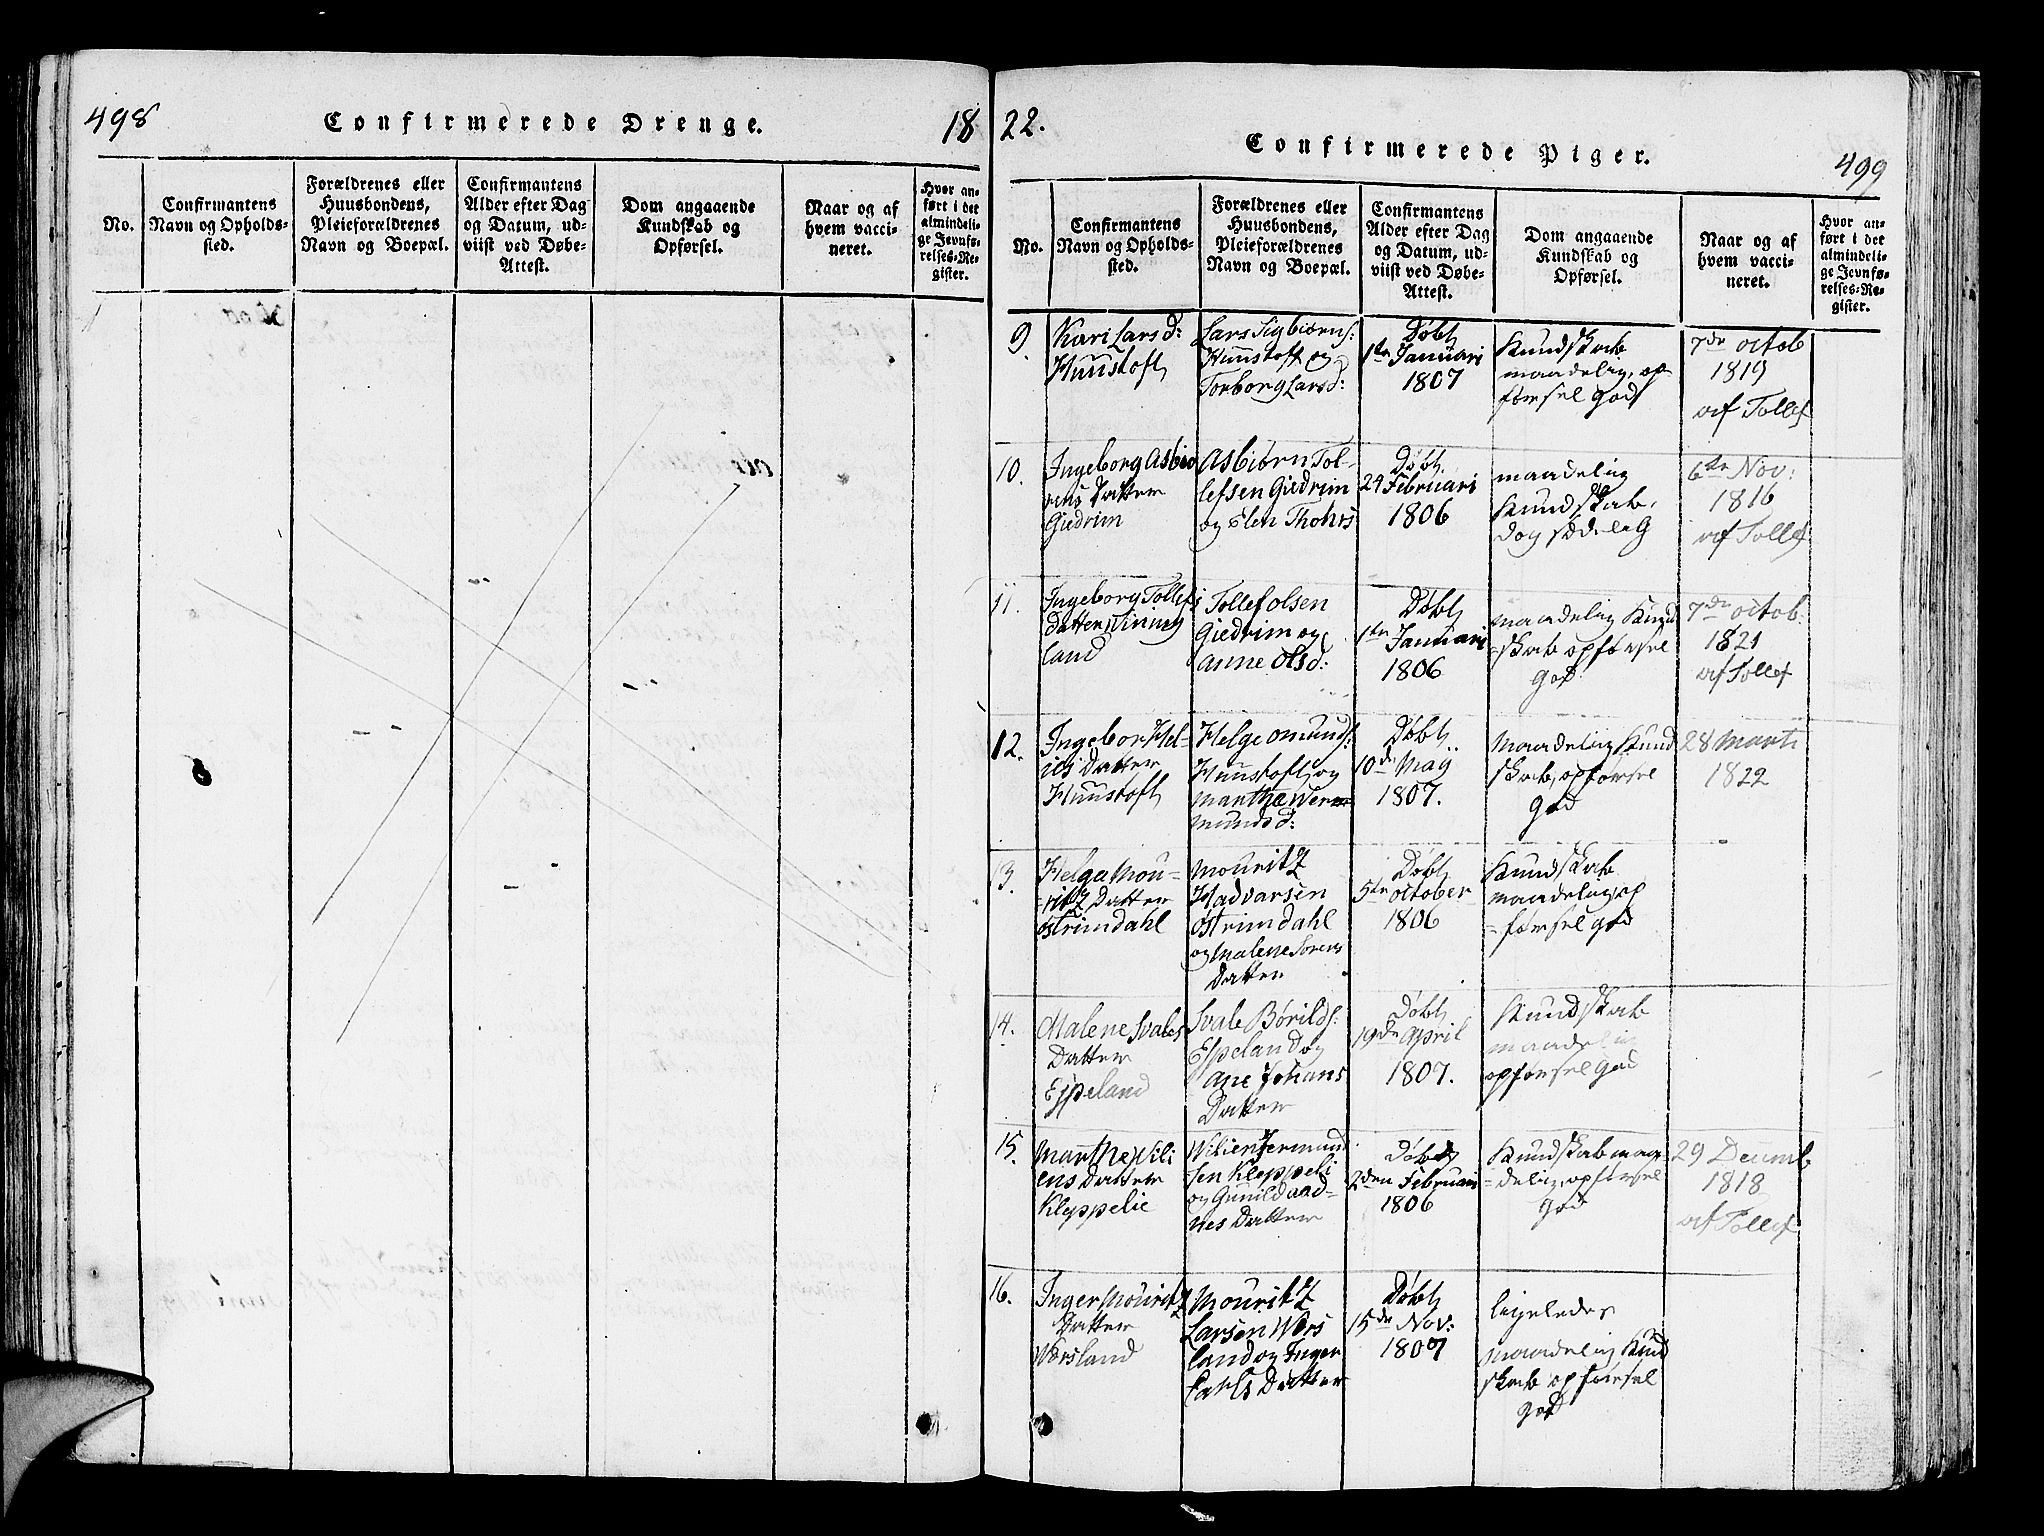 498
Confirmerede Drenge.
18
No.
Confirmantens
Navn og Opholds-
sted.
Forældrenes eller
Huusbondens,
Pleieforældrenes
Navn og Boepæl.
Confirmantens
Alder efter Dag
og Datum, ud-
viist ved Døbe-
Attest.
Dom angaaende
Kundskab og
Opførsel.
Naar og af
hvem vacci-
neret.
Hvor an-
ført i det
almindeli-
ge Jevnfø-
relses-Re-
gister.
22.
Confirmerede Piger.
499
No.
Confirmantens
Navn og Opholds-
sted.
Forældrenes eller
Huusbondens,
Pleieforældrenes
Navn og Boepæl.
Confirmantens
Alder efter Dag
og Datum, ud-
viist ved Døbe-
Attest.
Dom angaaende
Kundskab og
Opførsel.
Naar og af
hvem vacci-
neret.
Hvor an-
ført i det
almindeli-
ge Jevnfø-
relses-Re-
gister.
9.
Kari Larsd:
Huustoft
Lars Sigbiørns:
Huustoft og
Torborg Larsd:
Døbt
1te Januari
1807
Kundskab
maadelig, op
førsel god
7de octob
1819
af Tollef
10.
Ingeborg Asbiø
rns Datter
Giedrim
Asbiørn Tol-
lefsen Giedrim
og Elen Thohrs
Døbt
24 Februari
1806
maadelig
Kundskab,
dog sædelig
6te Nov:
1816
af Tollef
11.
Ingeborg Tollefs
Datter
land
Tollef olsen
Giedrim og
anne olsd:
Døbt
1te Januari
1806
maadelig Kund
-skab opførsel
god
7de octob:
1821
af Tollef
12.
Ingebor Hel-
Datter
Huustoft
Helge omunds:
Huustoft og
marthe Wer-
munds d:
Døbt
10de May
1807.
Maadelig Kund
skab, opførsel
god
28 Marti
1822
13.
Helga Mou-
-ritz Datter
østrimdahl
Mouritz
Hadvarsen
østrimdahl
og Malene Sørens
Datter
Døbt
5te october
1806
Kundskab
maadelig, op
-førsel god
14.
Malene Svales
Datter
Espeland
Svale Børilds:
Espeland og
Ane Johans
Datter
Døbt
19de April
1807.
Kundskab
maadelig
opførsel god
15.
Marthe Wili
ens Datter
Kleppelie
Wilien Jermund
sen Kleppeli
og Gunild aad-
nes Datter
Døbt
2den Februari
1806
Kundskab maa
-delig, opførsel
god
29 Decemb
1818
af Tollef
16.
Inger Mouritz
Datter
Wersland
Mouritz
Larsen Wers
land og Inger
Carls Datter
Døbt
15de Nov:
1807
ligeledes
maadelig Kund
skab opførsel
god